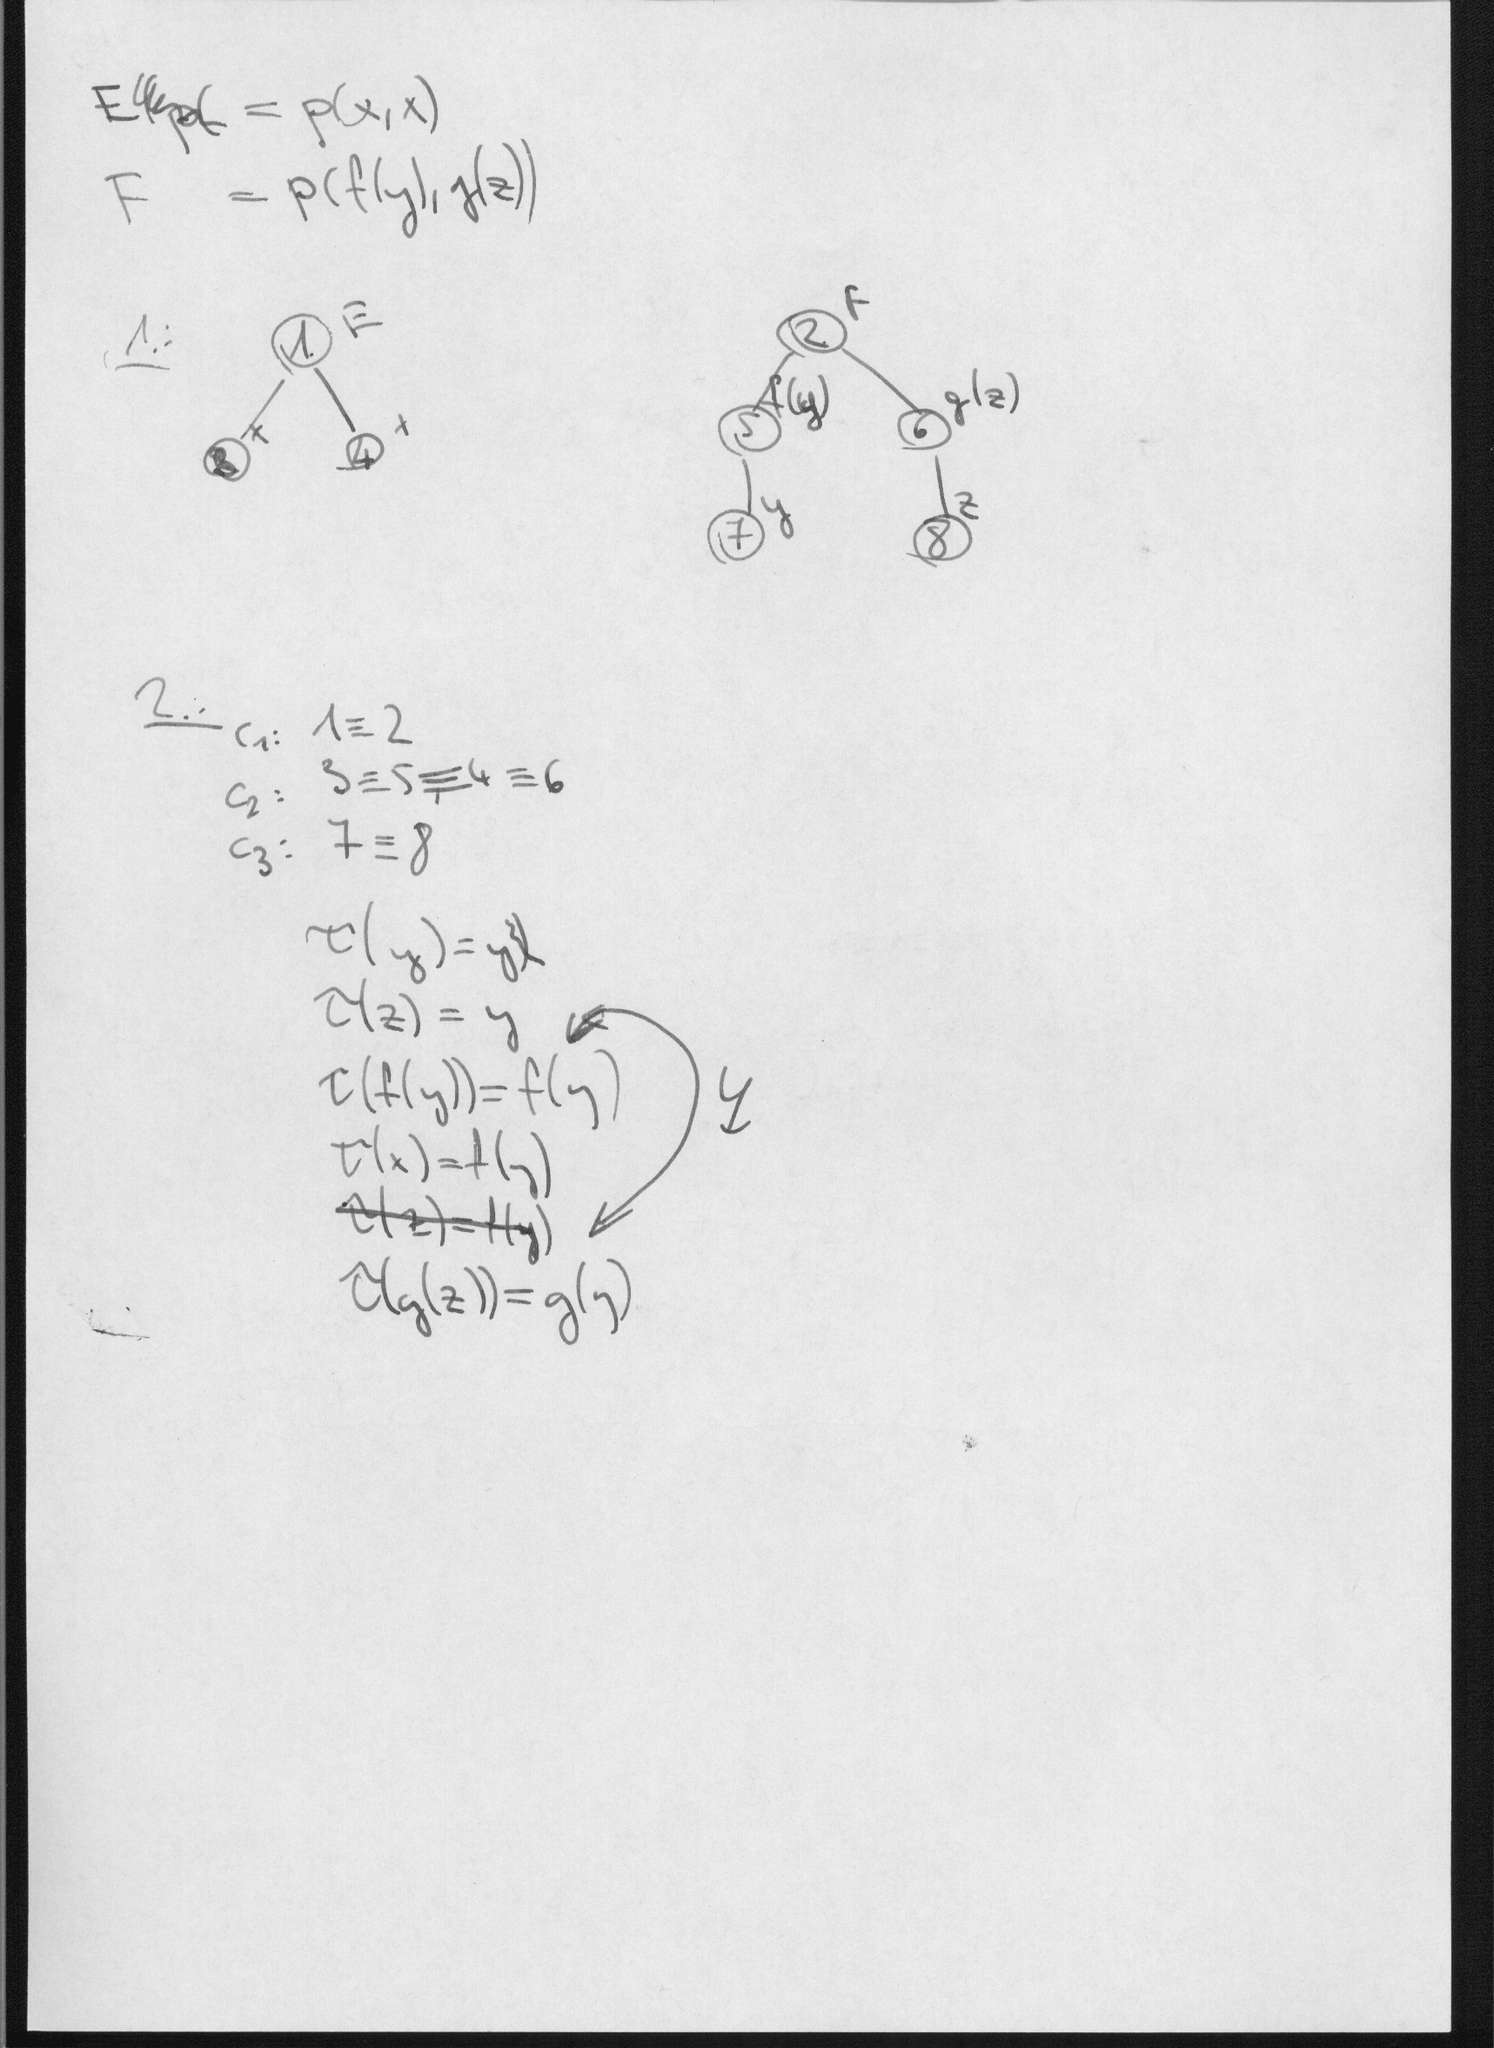 E = p(x,x)
F = p(f(y), g(z))
1.:
1 E
3 x
4 x
2 F
5 f(y)
6 g(z)
7 y
8 z
2.:
c₁: 1≡2
c₂: 3≡5≡4≡6
c₃: 7≡8
τ(y)=y
τ(z)=y
τ(f(y))=f(y)
τ(x)=f(y)
τ(z)=f(y)
τ(g(z))=g(y)